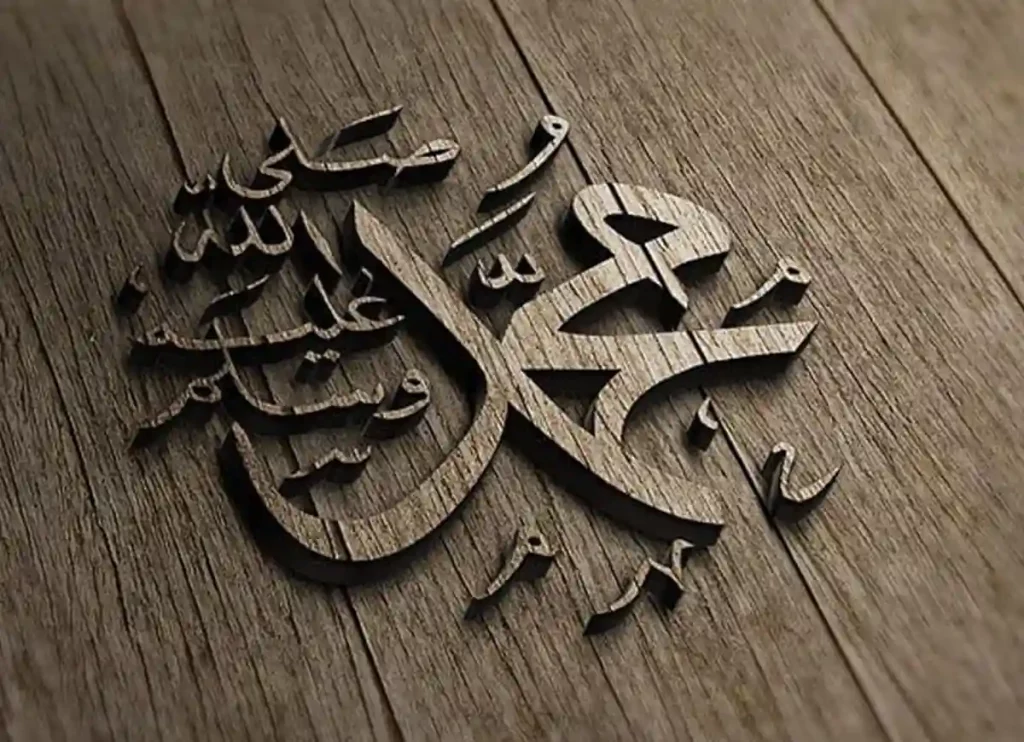 مُحَمَّدٌ
صَلَّى
اللَّهُ
عَلَيْهِ
وَسَلَّمَ